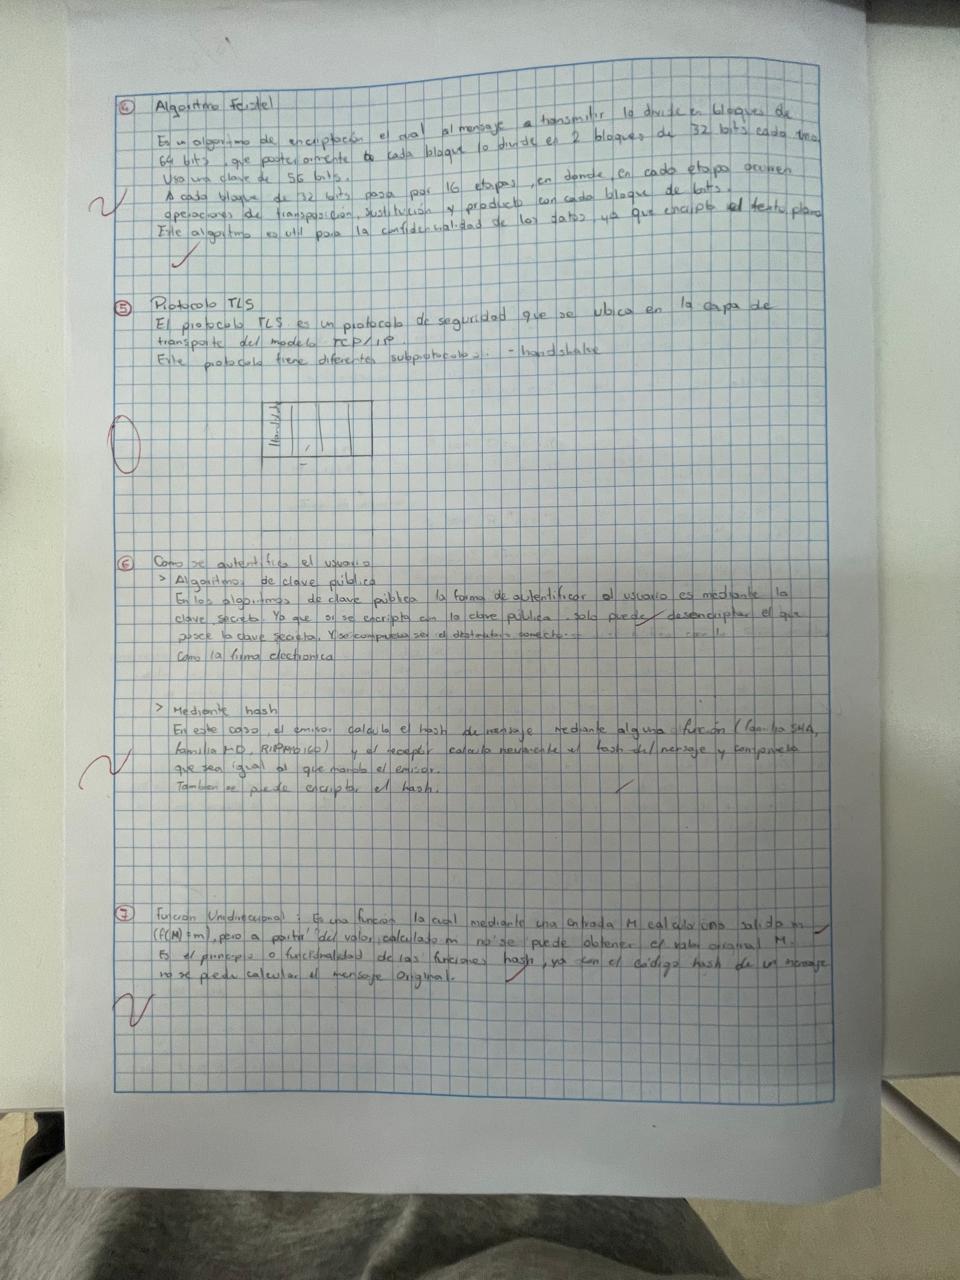 ④ Algoritmo Feistel
Es un algoritmo de encriptación el cual al mensaje a transmitir lo divide en bloques de
64 bits, que posteriormente cada bloque lo divide en 2 bloques de 32 bits cada uno,
Usa una clave de 56 bits.
A cada bloque de 32 bits pasa por 16 etapas, en donde, en cada etapa ocurren
operaciones de transposición, sustitución y producto con cada bloque de bits.
Este algoritmo es util para la confidencialidad de los datos ya que encripta el texto plano
⑤ Protocolo TLS
El protocolo TLS es un protocolo de seguridad que se ubica en la capa de
transporte del modelo TCP/IP.
Este protocolo tiene diferentes subprotocolos. - handshake
⑥ Como se autentifica el usuario
> Algoritmos de clave pública
En los algoritmos de clave pública la forma de autentificar al usuario es mediante la
clave secreta. Ya que si se encripta con la clave pública solo puede desencriptar el que
posee la clave secreta. Y se comprueba ser el destinatario correcto.
Como la firma electronica
> Mediante hash
En este caso, el emisor calcula el hash de mensaje mediante alguna función (familia SHA,
familia MD, RIPMD160) y el receptor calcula nuevamente el hash del mensaje y comprueba
que sea igual al que mando el emisor.
Tambien se puede encriptar el hash.
⑦ Función Unidireccional: Es una funcion la cual mediante una entrada M calcula una salida m
(f(M)=m), pero a partir del valor calculado m no se puede obtener el valor original M.
Es el principio o funcionalidad de las funciones hash, ya con el código hash de un mensaje
no se puede calcular el mensaje original.